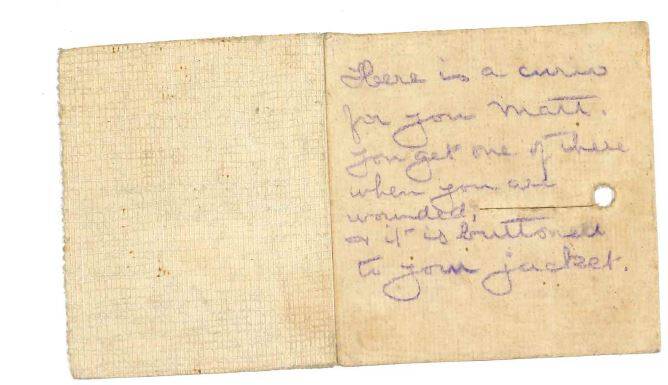 Here is a curio
for you Matt.
You get one of these
when you are
wounded,
& it is buttoned
to your jacket.